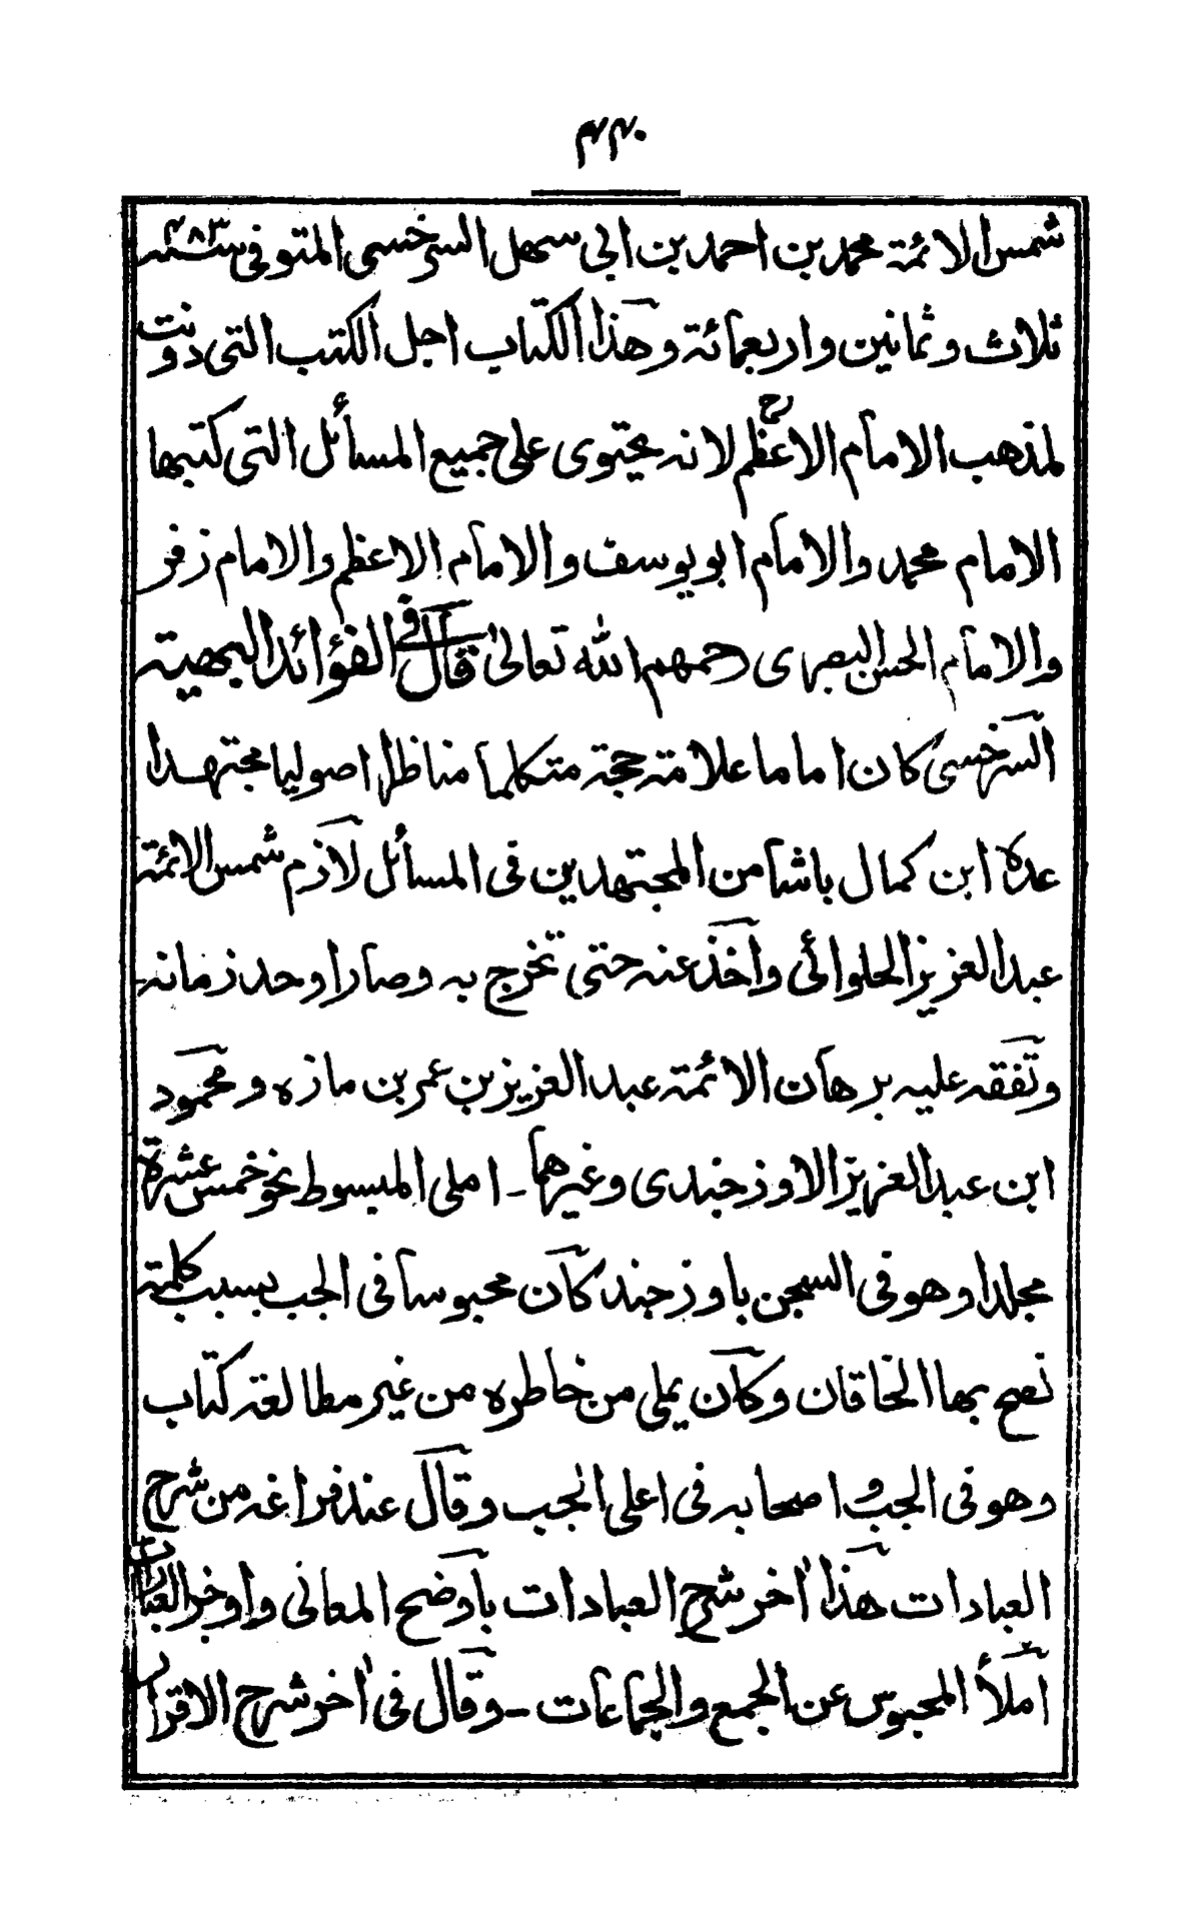 ۴۴۰
شمس الائمة محمد بن احمد بن ابی سهل السرخسی المتوفی سنة ۴۸۳
ثلاث وثمانین واربعمائة وهذا الکتاب اجل الکتب التی دونت
لمذهب الامام الاعظم لانه یحتوی علی جمیع المسائل التی کتبها
الامام محمد والامام ابو یوسف والامام الاعظم والامام زفر
والامام الحسن البصری رحمهم الله تعالیٰ قال فی الفؤائد البهیة
السرخسی کان اماما علامة حجة متکلما مناظرا اصولیا مجتهدا
عده ابن کمال باشا من المجتهدین فی المسائل لازم شمس الائمة
عبد العزیز الحلوائی واخذ عنه حتی تخرج به وصار اوحد زمانه
وتفقه علیه برهان الائمة عبد العزیز بن عمر بن مازه ومحمود
ابن عبد العزیز الاوزجندی وغیرهما - املی المبسوط نحو خمس عشرة
مجلدا وهو فی السجن باوزجند کان محبوسا فی الجب بسبب کلمة
نصح بها الخاقان وکان یملی من خاطره من غیر مطالعة کتاب
وهو فی الجب و اصحابه فی اعلی الجب وقال عند فراغه من شرح
العبادات هذا اٰخر شرح العبادات باوضح المعانی واوجز العبارات
املأ المحبوس عن الجمع والجماعات - وقال فی اٰخر شرح الاقرار